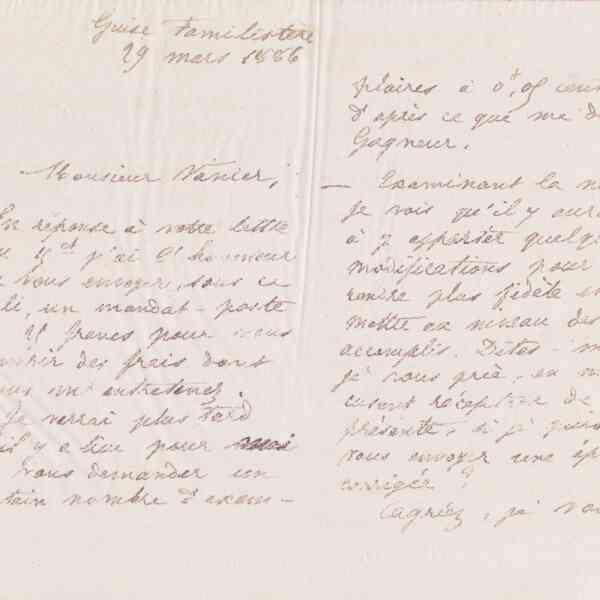 Guise Familistère
29 mars 1886
Monsieur Vanier,
En réponse à votre lettre
du ct j'ai l'honneur
vous envoyer, sous ce
pli, un mandat-poste
25 francs pour vous
des frais dont
vous m'entretenez.
Je verrai plus tard
s'il y a lieu pour moi
vous demander un
tain nombre d'exem-
plaires à 0f,05
d'après ce que me
Gagneur.
— Examinant la
je vois qu'il y aur
à y apporter quelq
modifications pour
rendre plus fidèle
mettre au niveau des
accomplis. Dites-m
je vous prie, en
cusant réception de
présente, si je puis
vous envoyer une ép
corrigée ?
Agréez, je vou